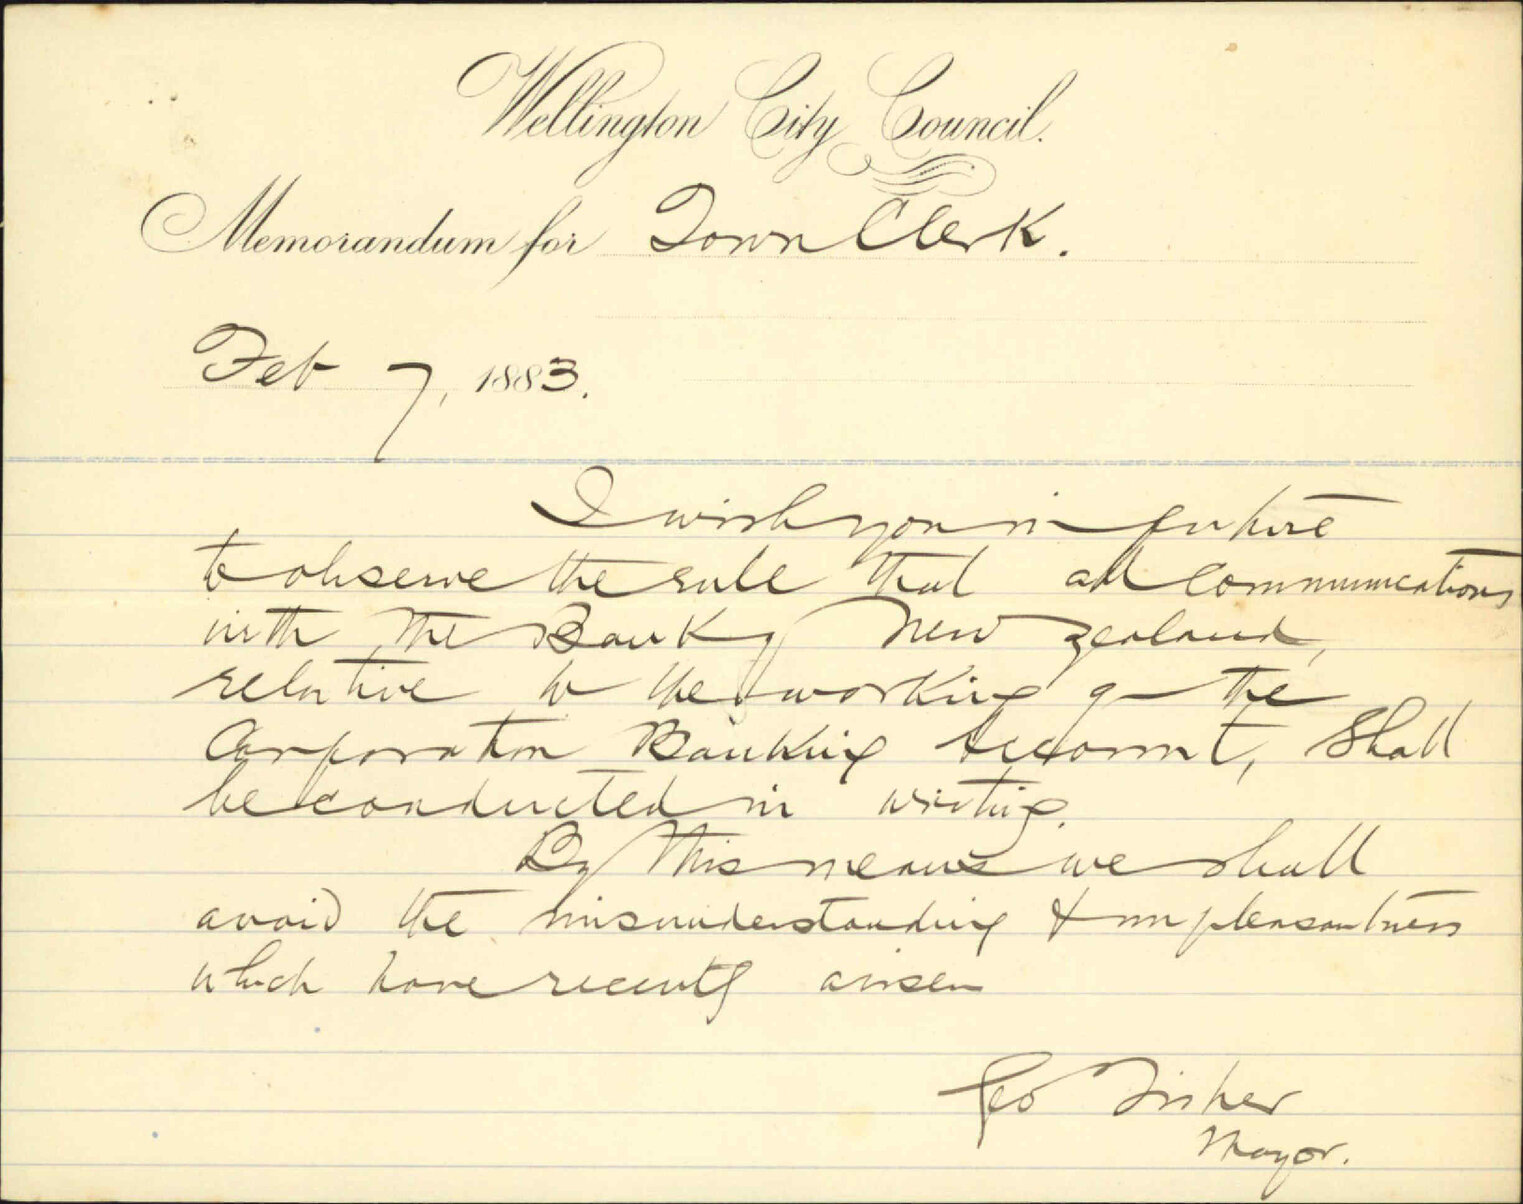 Wellington City Council.
Memorandum for Town Clerk.
Feb 7, 1883.
I wish you in future
to observe the rule that all communications
with the Bank of New Zealand,
relative to the working of the
Corporation Banking Account, shall
be conducted in writing.
By this means we shall
avoid the misunderstanding & unpleasantness
which have recently arisen
Geo Fisher
Mayor.